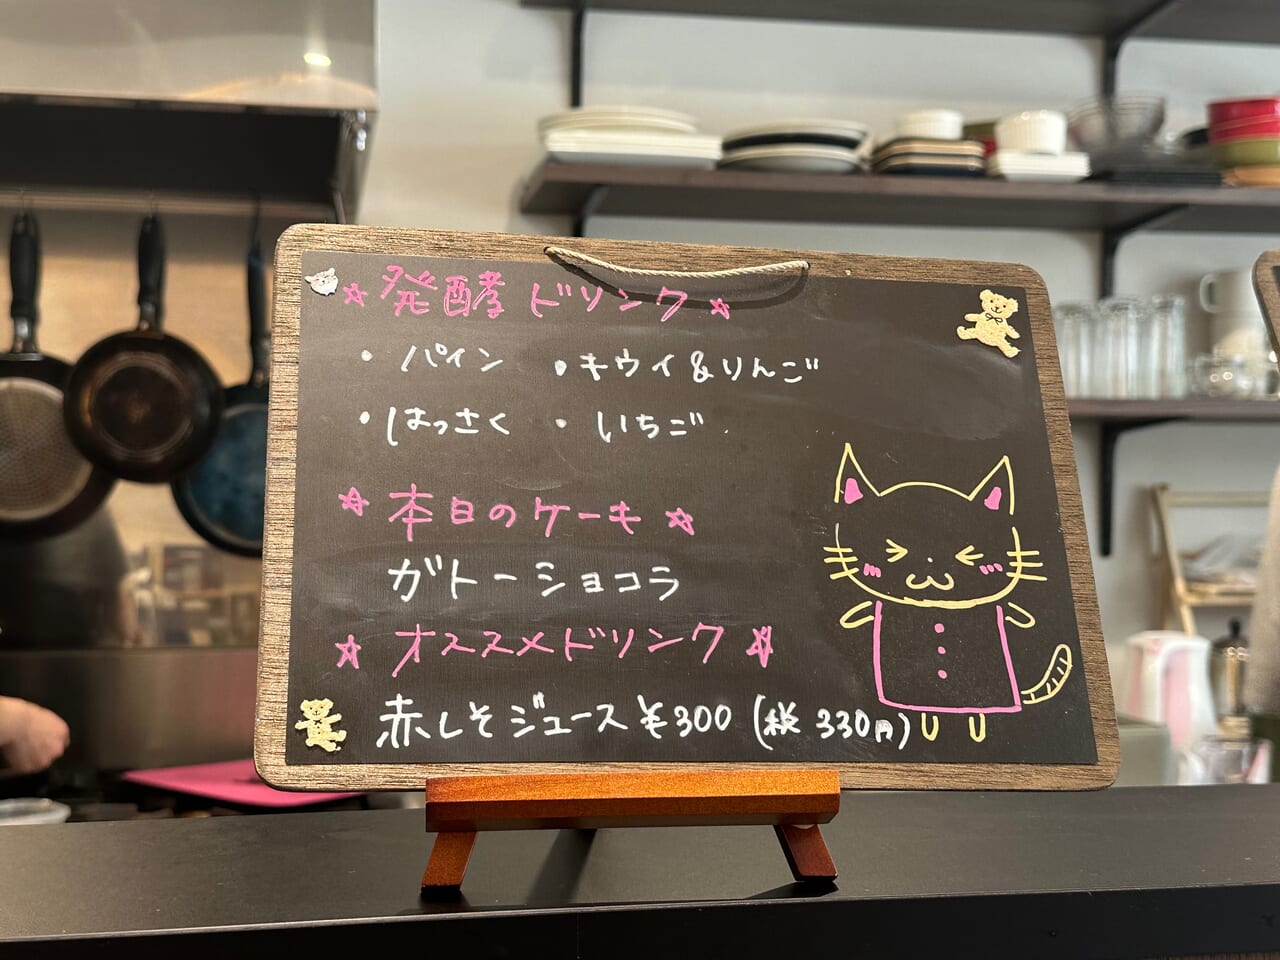 ☆発酵ドリンク☆
・パイン ・キウイ&りんご
・はっさく ・いちご
☆本日のケーキ☆
ガトーショコラ
☆オススメドリンク☆
赤しそジュース¥300(税330円)